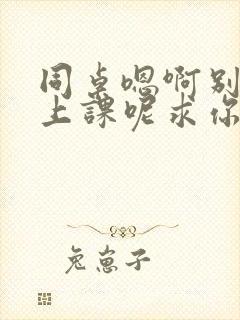 同桌嗯啊别
上課呢求你
兔崽子